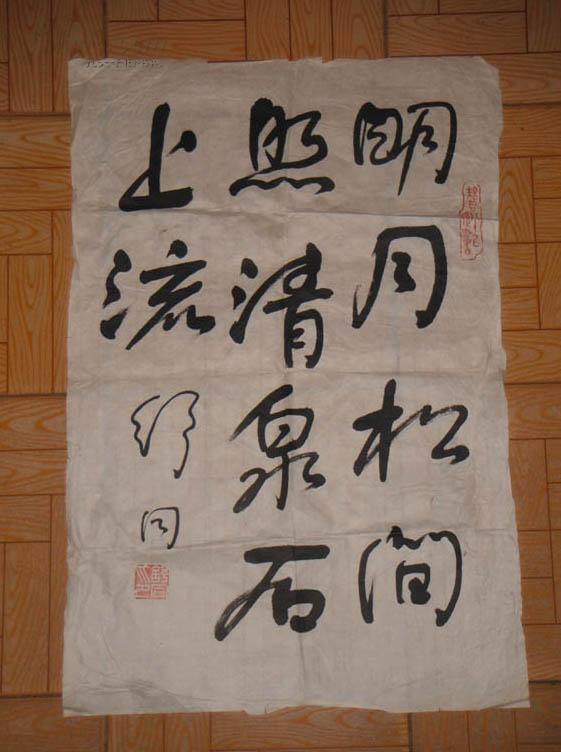 明月松間
照清泉石
上流
舒同